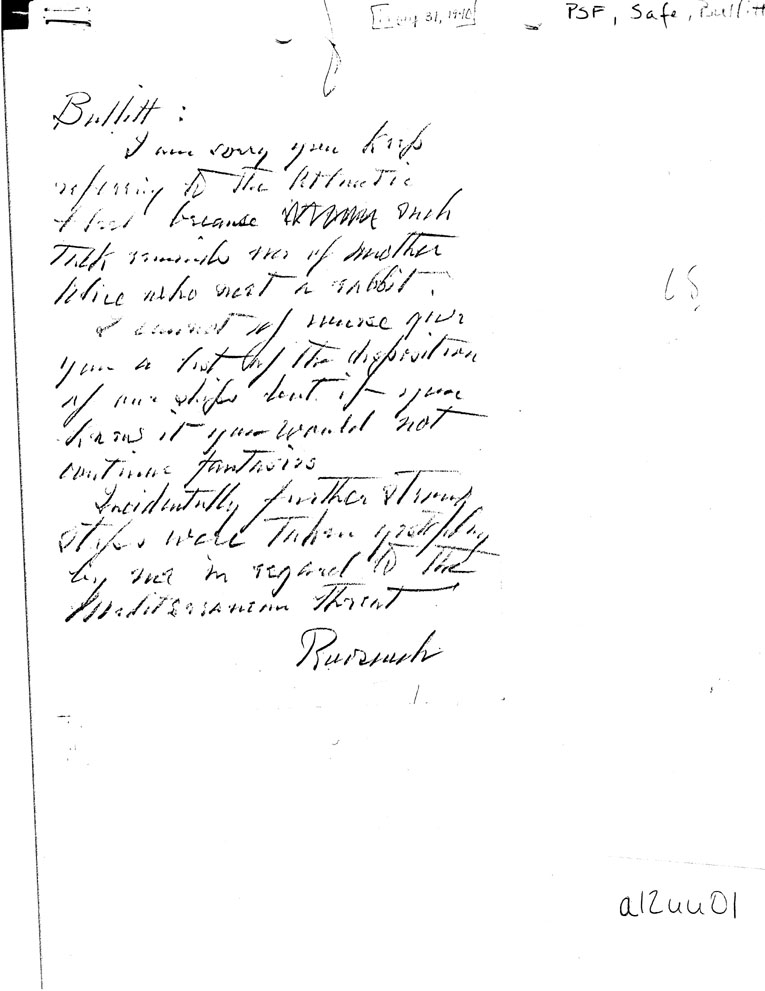 PSF, Safe, Bullitt
31, 1940]
Bullitt:
I am sorry you keep
referring to the Atlantic
fleet because such
talk reminds me of mother
Alice who met a rabbit.
I cannot of course give
you a list of the disposition
of our ships but if you
knew it you would not
continue fantasies
Incidentally further strong
steps were taken yesterday
by me in regard to the
Mediterranean threat
Roosevelt
a12uu01